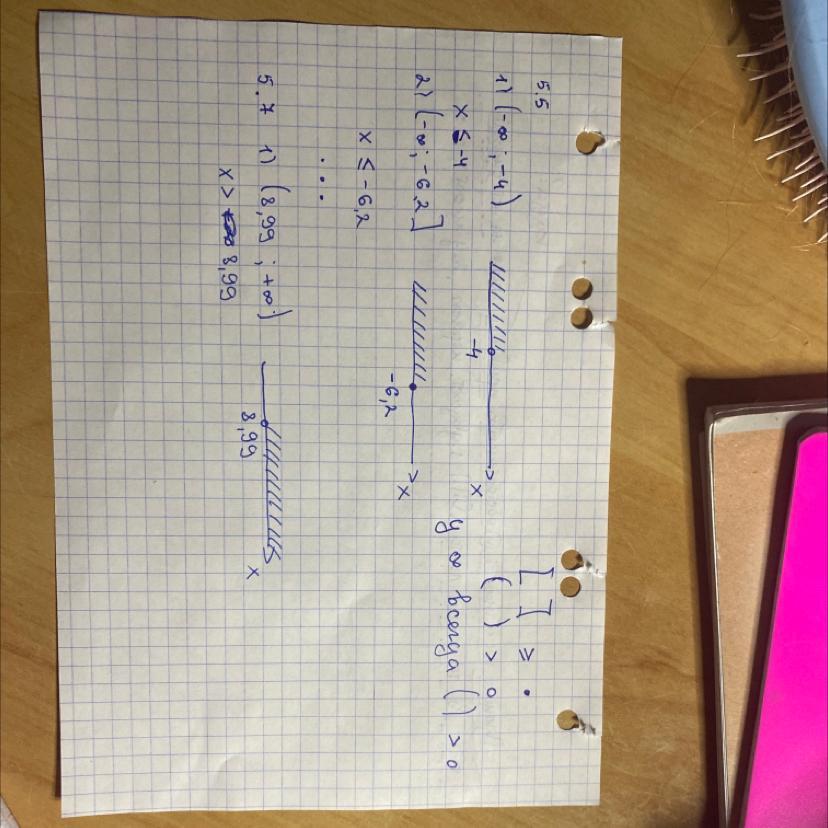 5.5
1) (-∞; -4)
x ≤ -4
-4
x
2) (-∞; -6,2]
x ≤ -6,2
-6,2
x
...
5.7 1) (8,99; +∞)
x > 8,99
8,99
x
[ ] ≥ •
( ) > o
у ∞ всегда ( ) > o